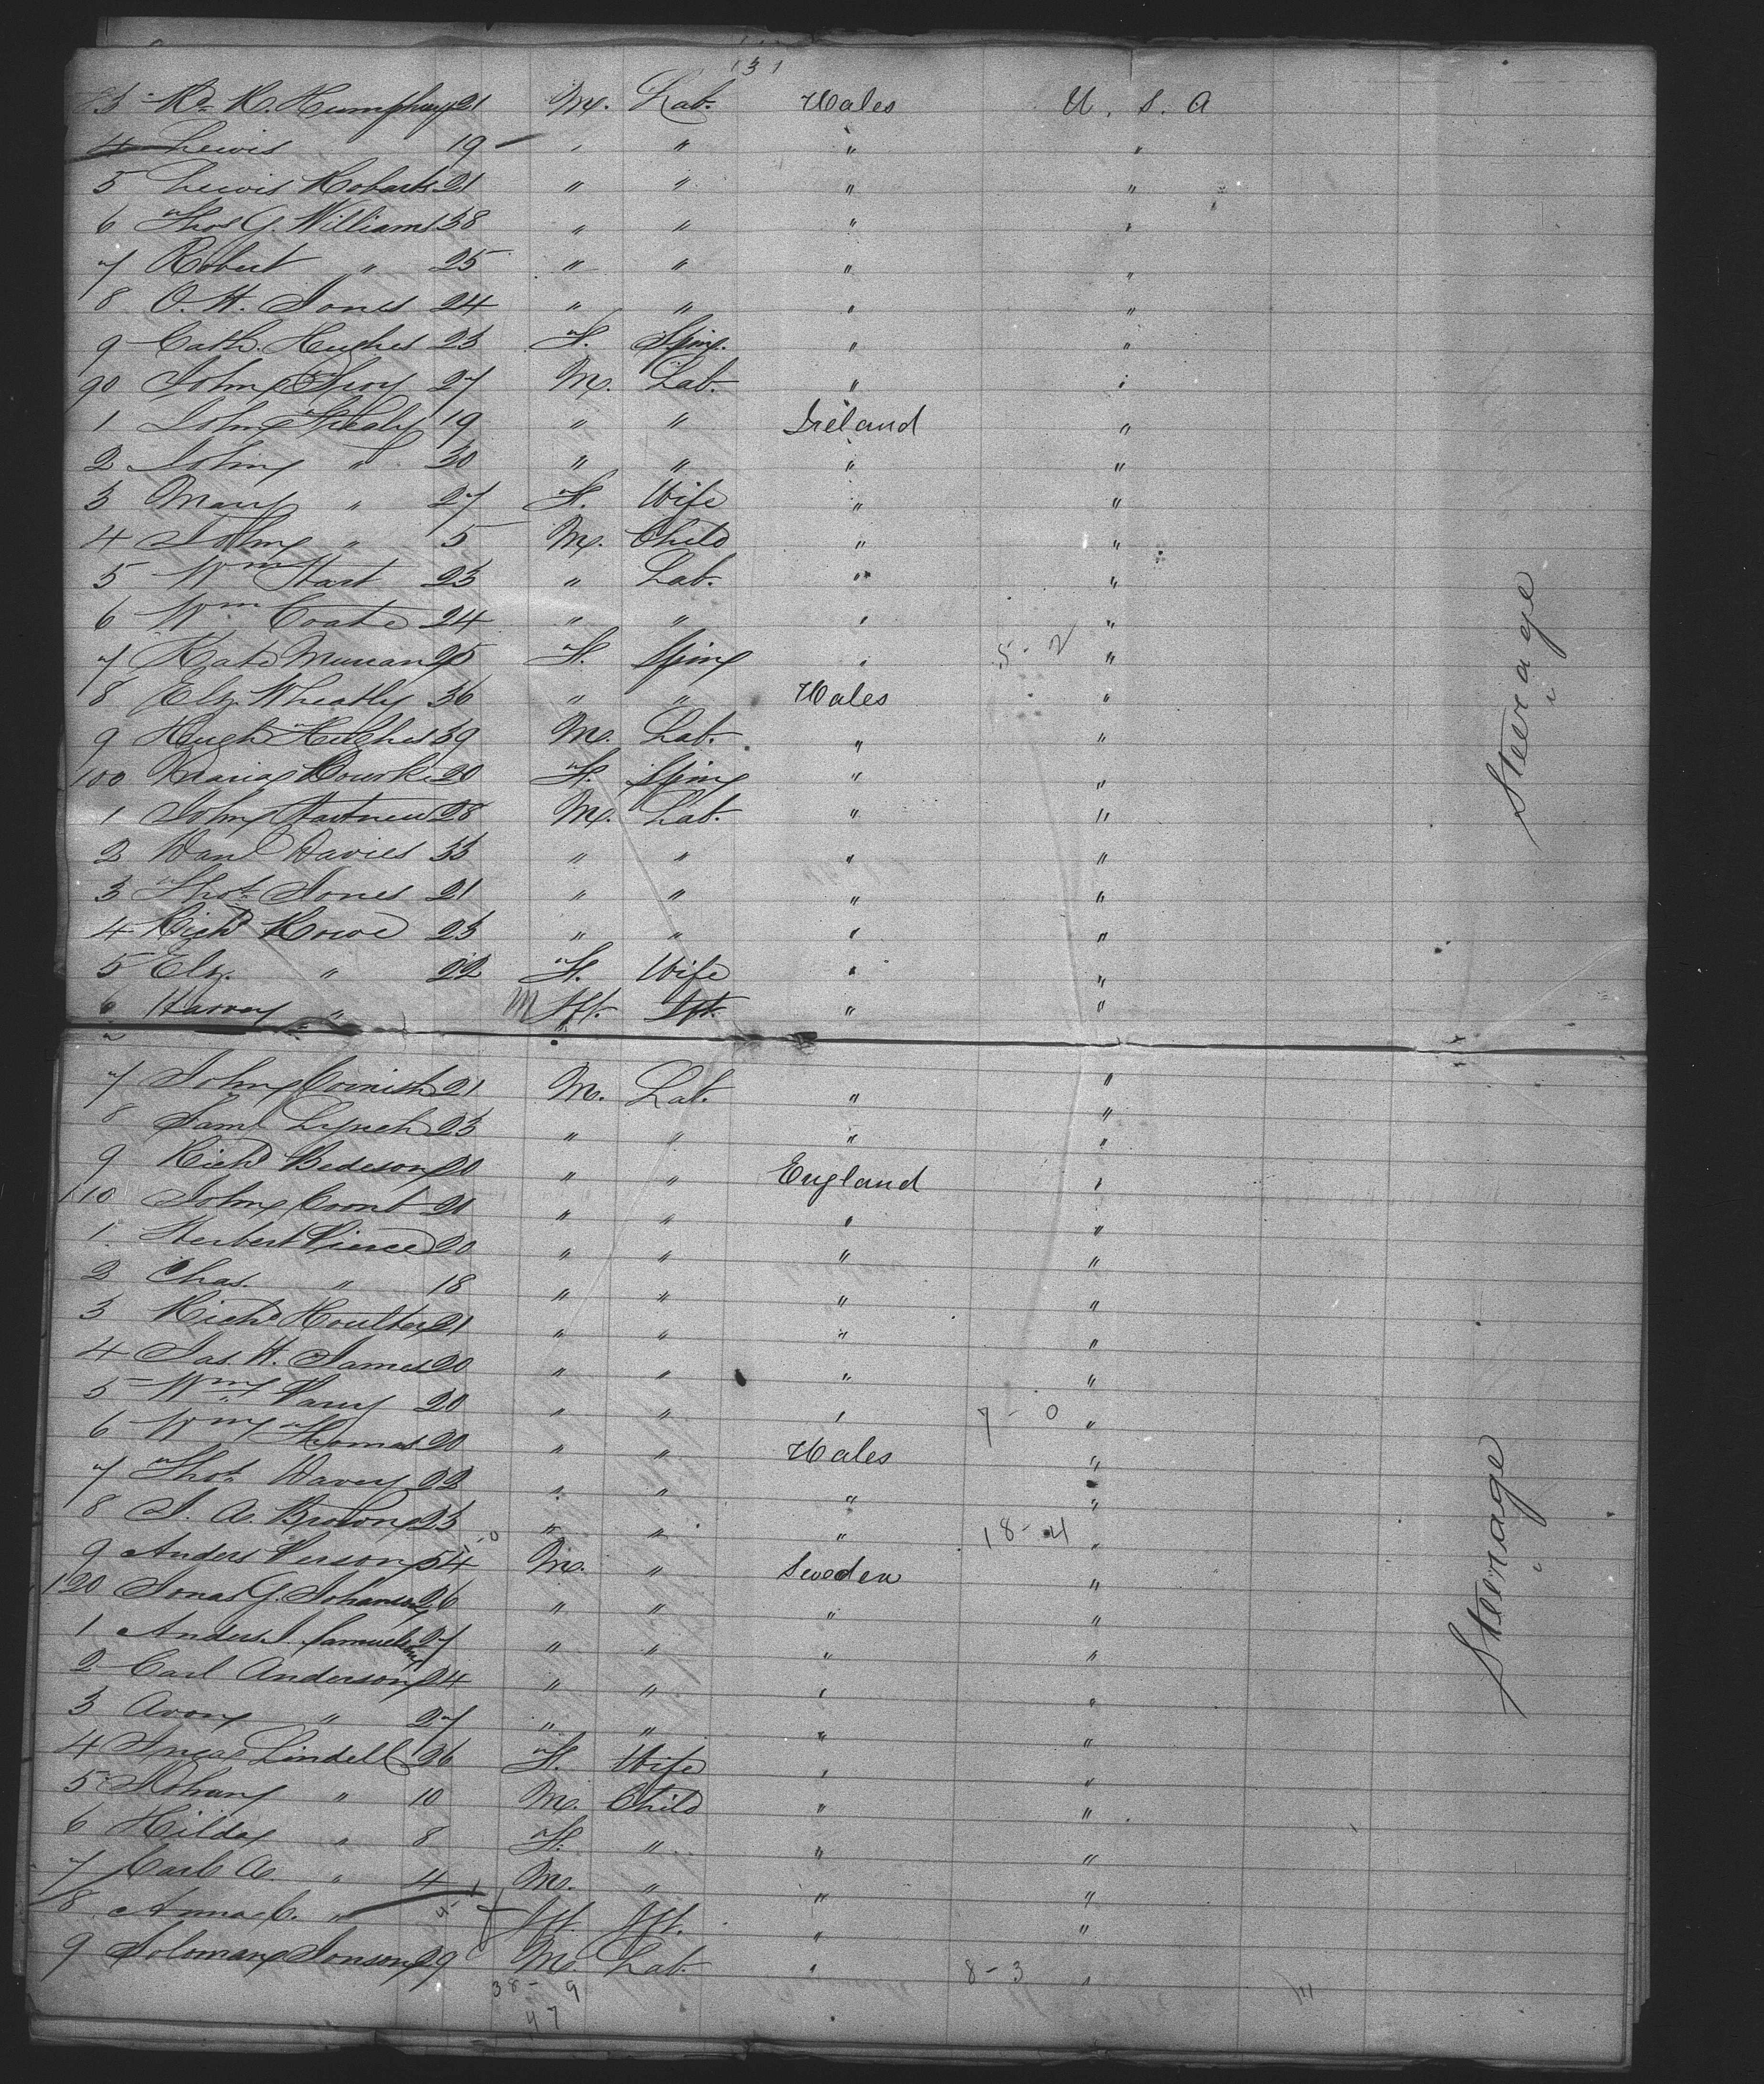 131
83 Wm H. Humphrey 21 M. Lab. Wales U. S. A
4 Lewis 19 " " " "
5 Lewis Roberts 21 " " " "
6 Thos G. Williams 38 " " " "
7 Robert " 25 " " " "
8 O. H. Jones 24 " " " "
9 Cath. Hughes 23 F. Spins. " "
90 John 27 M. Lab. " "
1 John Healy 19 " " Ireland "
2 John " 30 " " " "
3 Mary " 27 F. Wife " "
4 John " 5 M. Child " "
5 Wm Hart 23 " Lab. " "
6 Wm Coate 24 " " " "
7 Kate 25 F. Spin " 5-2 "
8 Elz. Wheatly 36 " " Wales "
9 Hugh Hughes 39 M. Lab. " "
100 Maria Rourke 20 F. Spin " "
1 John Hartnew 28 M. Lab. " "
2 Danl Davies 33 " " " "
3 Thos Jones 21 " " " "
4 Richd Rowe 23 " " " "
5 Elz. " 22 F. Wife " "
6 Harvey " M Ift. Ift. " "
7 John Cornish 21 M. Lab. " "
8 Saml Lynch 23 " " " "
9 Richd 20 " " England "
110 John 21 " " " "
1 Herbert Pierce 20 " " " "
2 Chas. " 18 " " " "
3 Richd Houlter 21 " " " "
4 Jas. H. James 20 " " " "
5 Wm 20 " " " 7-0 "
6 Wm Thomas 20 " " Wales "
7 Thos Davey 22 " " " "
8 J. A. Brown 23 " " " 18-4 "
9 Anders Person 54 M. " Sweden "
120 Jonas G. Johanson 26 " " " "
1 Anders J. Samuelson 27 " " " "
2 Carl Anderson 24 " " " "
3 Aron " 27 " " " "
4 Inga Lindell 36 F. Wife " "
5 Johan " 10 M. Child " "
6 Hilda " 8 F. " " "
7 Carl A. " 4 M. " " "
8 Anna C. " f Ift. Ift. " "
9 Soloman Jonson 29 M. Lab. " 8-3 "
38-9
47
Steerage
"
Steerage
"